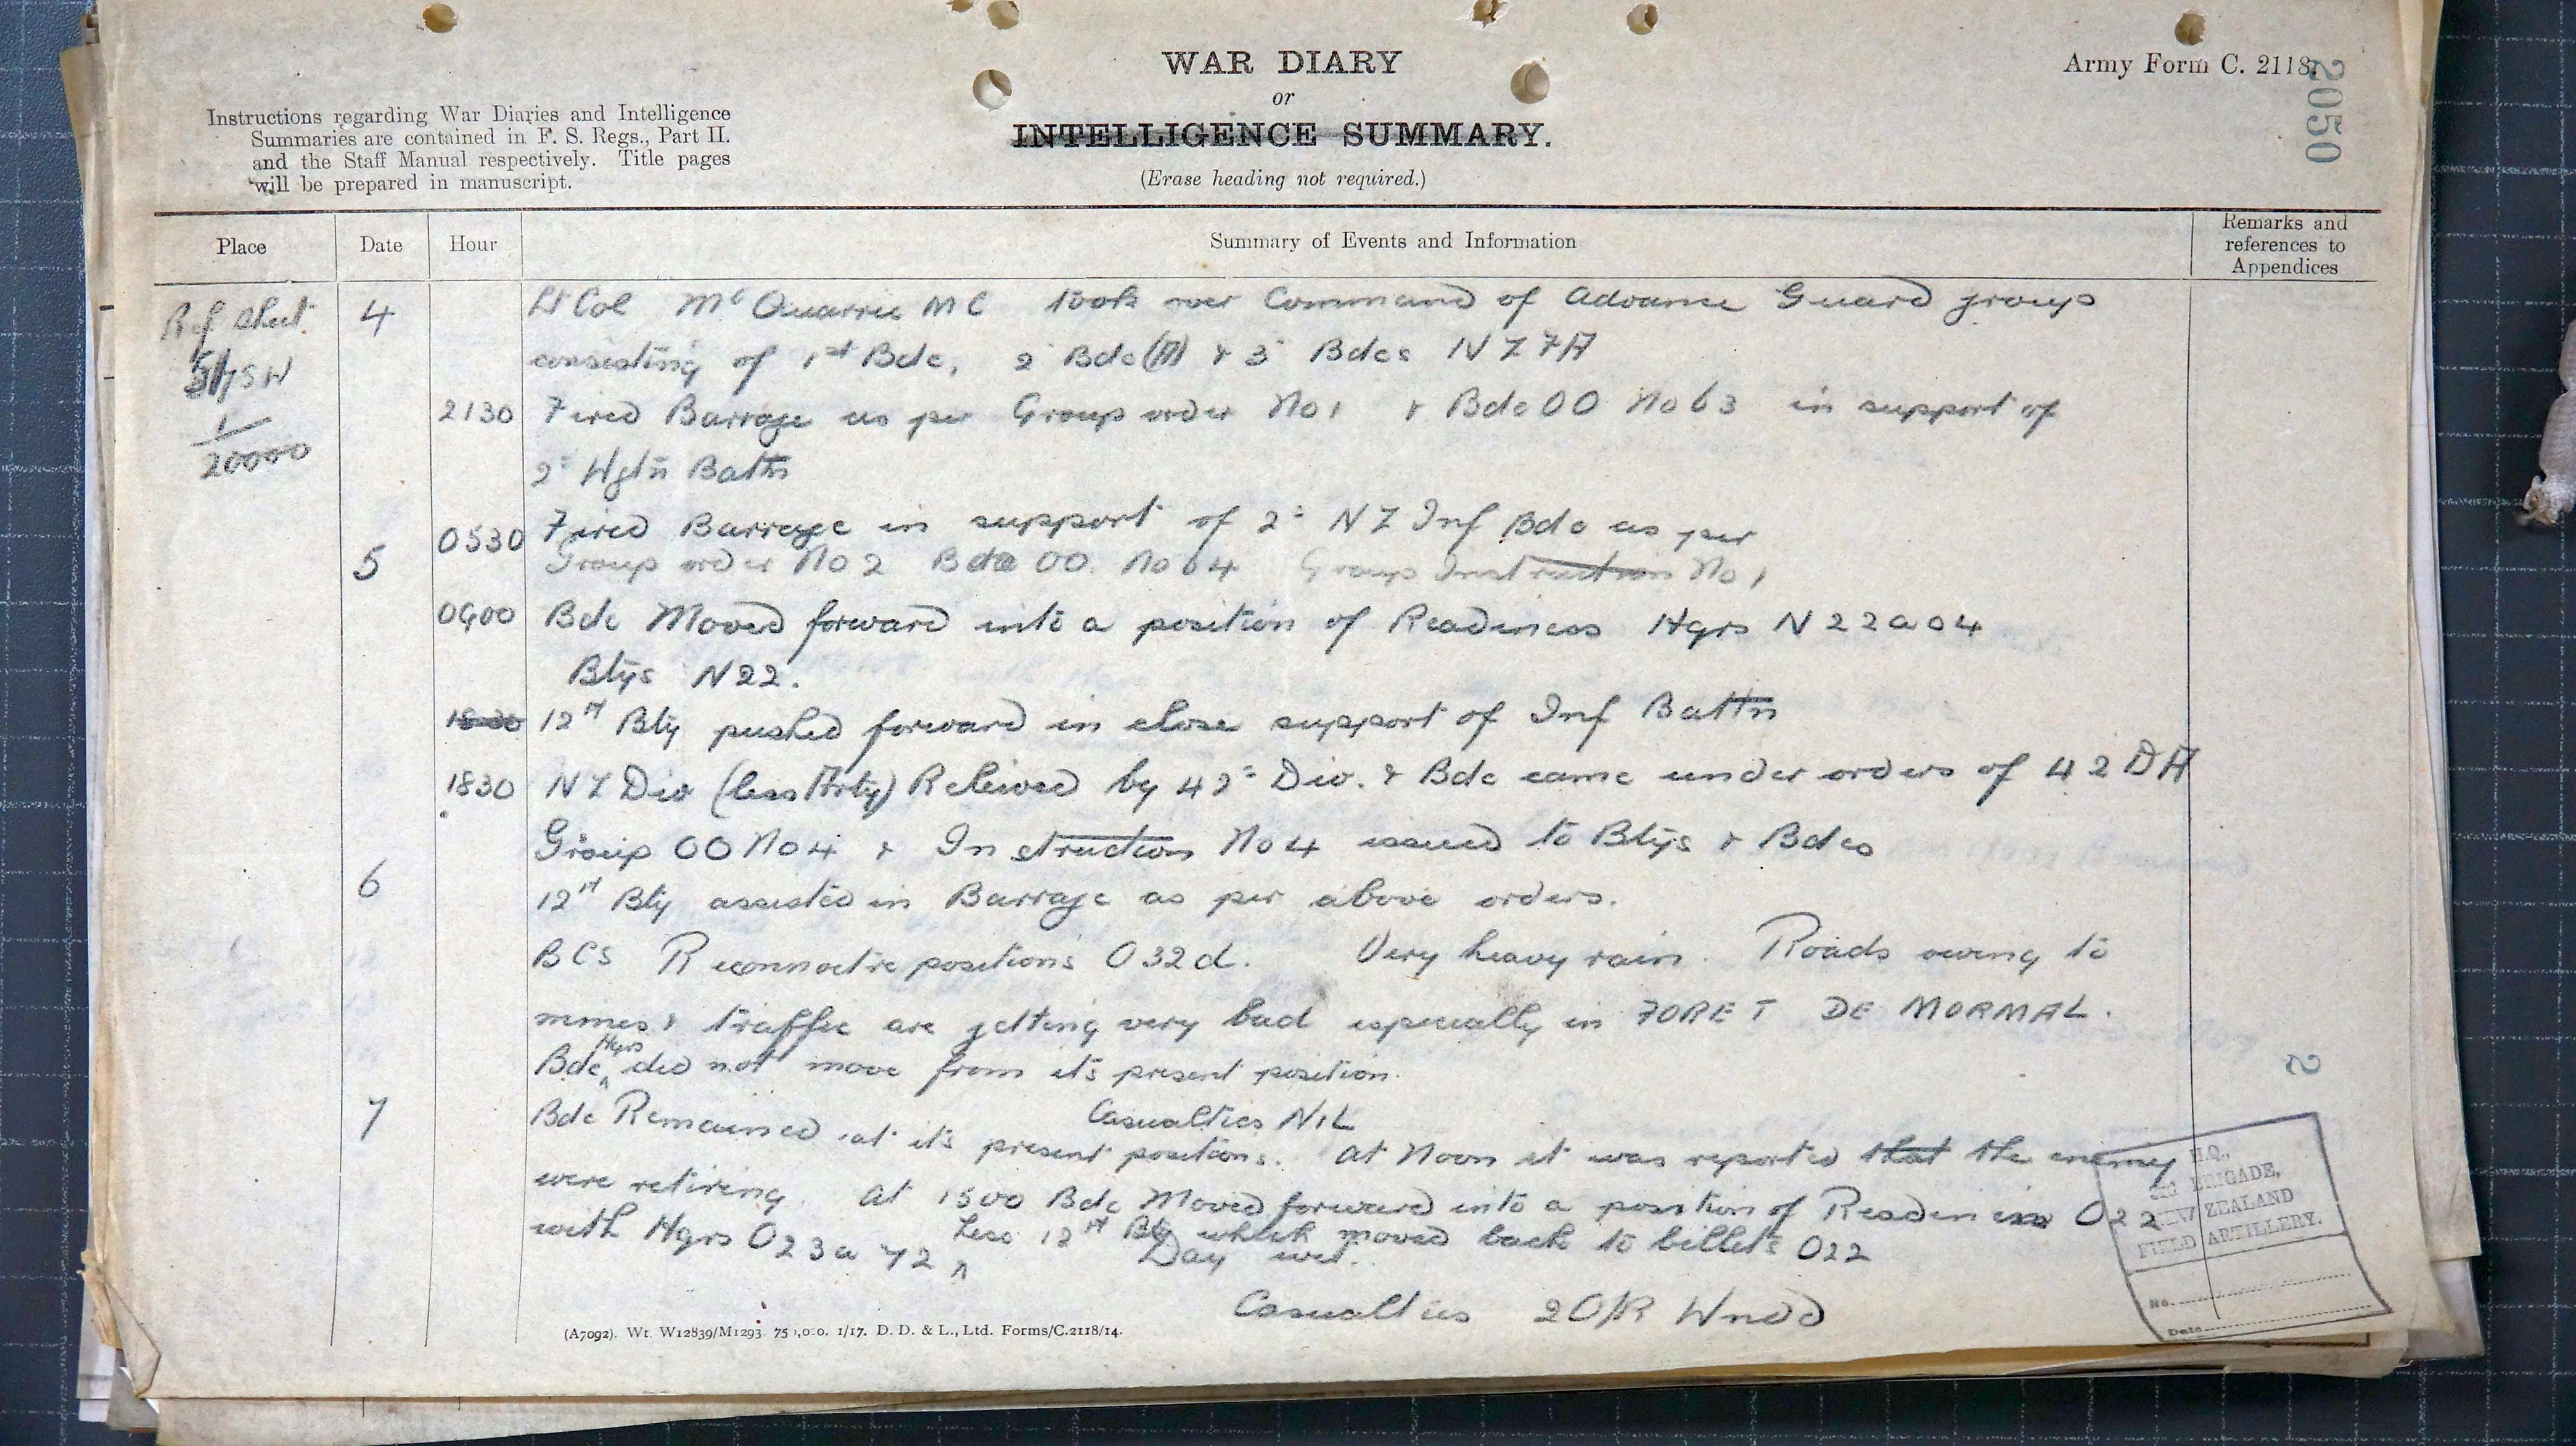 WAR DIARY
or
INTELLIGENCE SUMMARY.
(Erase heading not required.)
Army Form C. 2118.
2050
Instructions regarding War Diaries and Intelligence
Summaries are contained in F. S. Regs., Part II.
and the Staff Manual respectively. Title pages
will be prepared in manuscript.
Place
Date
Hour
Summary of Events and Information
Remarks and
references to
Appendices
Ref Sheet
SW
1/20000
4
Lt Col McQuarrie MC took over Command of Advance Guard group
consisting of 1st Bde, 2 Bde (A) & 3 Bdes NZFA
2130 Fired Barrage as per Group order No 1 & Bde OO No 63 in support of
2 Wgtn Battn
5
0530 Fired Barrage in support of 2 NZ Inf Bde as per
Group order No 2 Bde OO. No 64 Group Instruction No 1
0900 Bde Moved forward into a position of Readiness Hqrs N22a04
Btys N22.
1830 12th Bty pushed forward in close support of Inf Battn
1830 NZ Div (less Arty) Releived by 42 Div. & Bde came under orders of 42 DA
Group OO No 4 & Instruction No 4 issued to Btys & Bdes
6
12th Bty assisted in Barrage as per above orders.
BCS Reconnoitre positions O32d. Very heavy rain. Roads owing to
mines & traffic are getting very bad especially in FORET DE MORMAL.
Bde Hqrs did not move from its present position.
Casualties NIL
7
Bde Remained at its present positions. At Noon it was reported that the enemy
were retiring. At 1500 Bde Moved forward into a position of Readiness O22
with Hqrs O23a42 Less 12th Bty which moved back to billets O22
Day wet.
Casualties 2 O/R Wndd
2
H.Q.,
3rd BRIGADE,
NEW ZEALAND
FIELD ARTILLERY.
No.
Date
(A7092). Wt. W12839/M1293. 750,000. 1/17. D. D. & L., Ltd. Forms/C.2118/14.